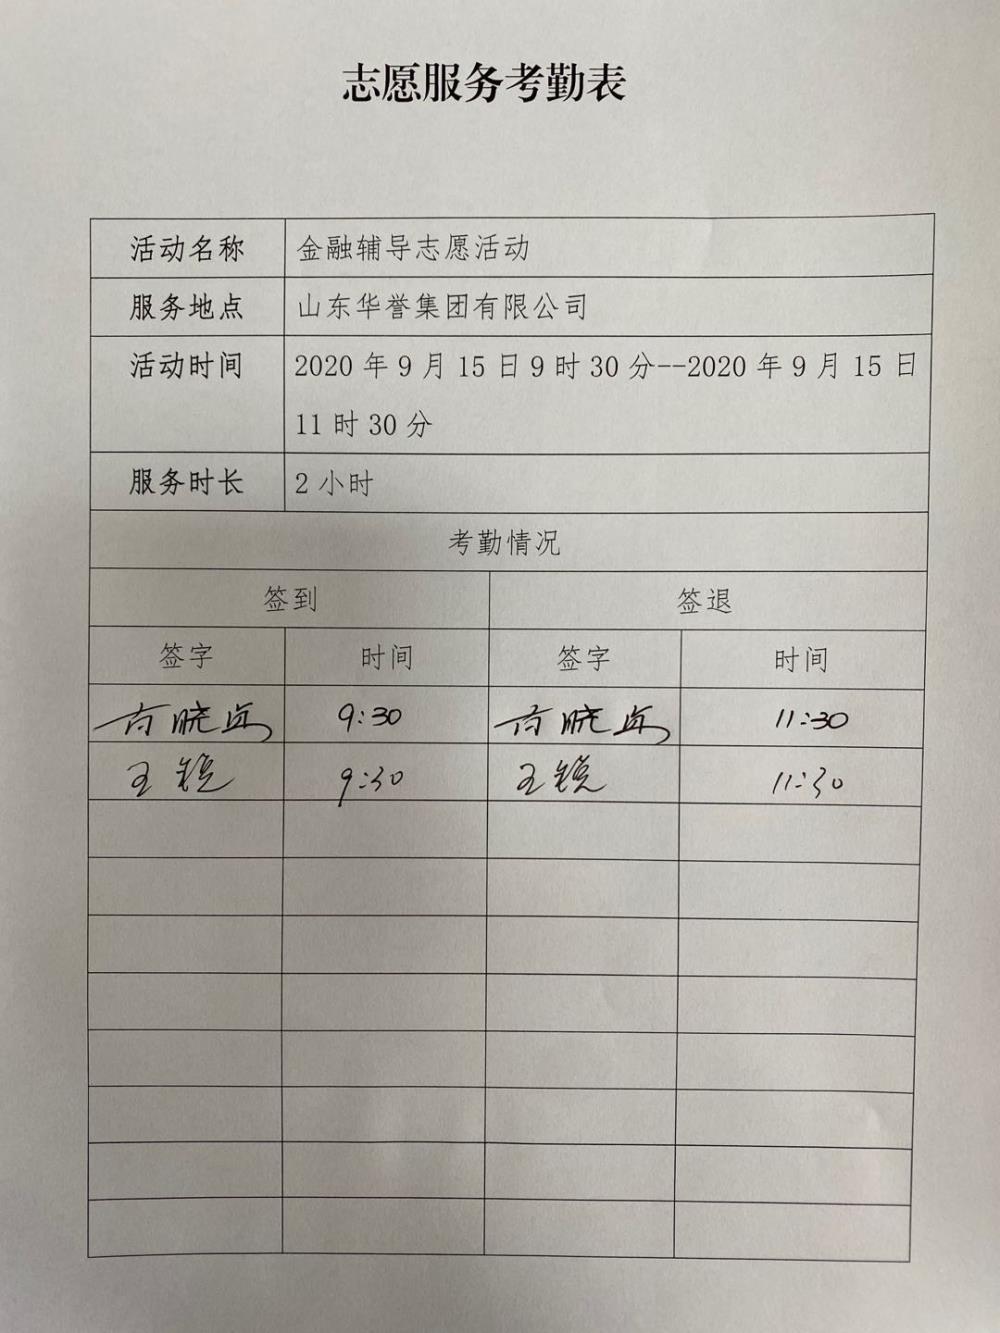 志愿服务考勤表
活动名称 金融辅导志愿活动
服务地点 山东华誉集团有限公司
活动时间 2020 年 9 月 15 日 9 时 30 分--2020 年 9 月 15 日
11 时 30 分
服务时长 2 小时
考勤情况
签到 签退
签字 时间 签字 时间
晓 9:30 晓 11:30
王锐 9:30 王锐 11:30